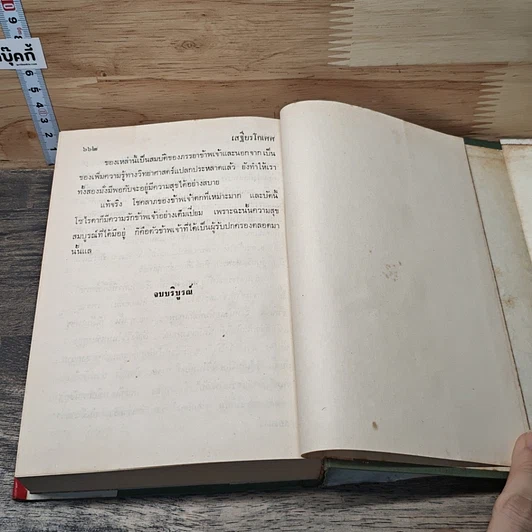 บุ๊คกี้
๖๖๒
เสฐียรโกเศศ
ของเหล่านี้เป็นสมบัติของภรรยาข้าพเจ้าและนอกจากเป็น
ของเพิ่มความรู้ทางวิทยาศาสตร์แปลกประหลาดแล้ว ยังทำให้เรา
ทั้งสองมั่งมีพอกับจะอยู่มีความสุขได้อย่างสบาย
แท้จริง โชคลาภของข้าพเจ้าตกที่เหมาะมาก และบัดนี้
ไซโรคาก็มีความรักข้าพเจ้าอย่างเต็มเปี่ยม เพราะฉะนั้นความสุข
สมบูรณ์ที่ได้มีอยู่ ก็คือตัวข้าพเจ้าที่ได้เป็นผู้รับปกครองตลอดมา
นั้นแล
จบบริบูรณ์
9
5
4
3
2